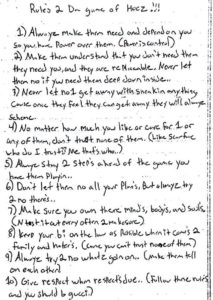 Rules 2 Da game of Hoez!!!
1) Always make them need and depend on you
so you have Power over them. (Power is control)
2) Make them understand that you don't need them
they need you, and they are replaceable. Never let
them no if you need them deep down inside...
3) Never let no 1 get away with sneak in anything,
cause once they feel they can get away they will always
scheme.
4) No matter how much you like or care for 1 or
any of them, don't trust none of them. (Like Scarface
who do I trust? Me that's who.)
5) Always stay 2 steps ahead of the game you
have them Playin...
6) Don't let them no all your Plans, But always try
2 no there's..
7) Make sure you own there minds, body's, and souls.
(N test it out every often 2 make sure)
8) Keep your biz on the low as Possible when it comes 2
Family and Haters. (Cause you can't trust none of them)
9) Always try 2 no whats goin on.. (Make them tell
on each other)
10) Give respect when respects due.. (Follow these rules
and you should be good!)